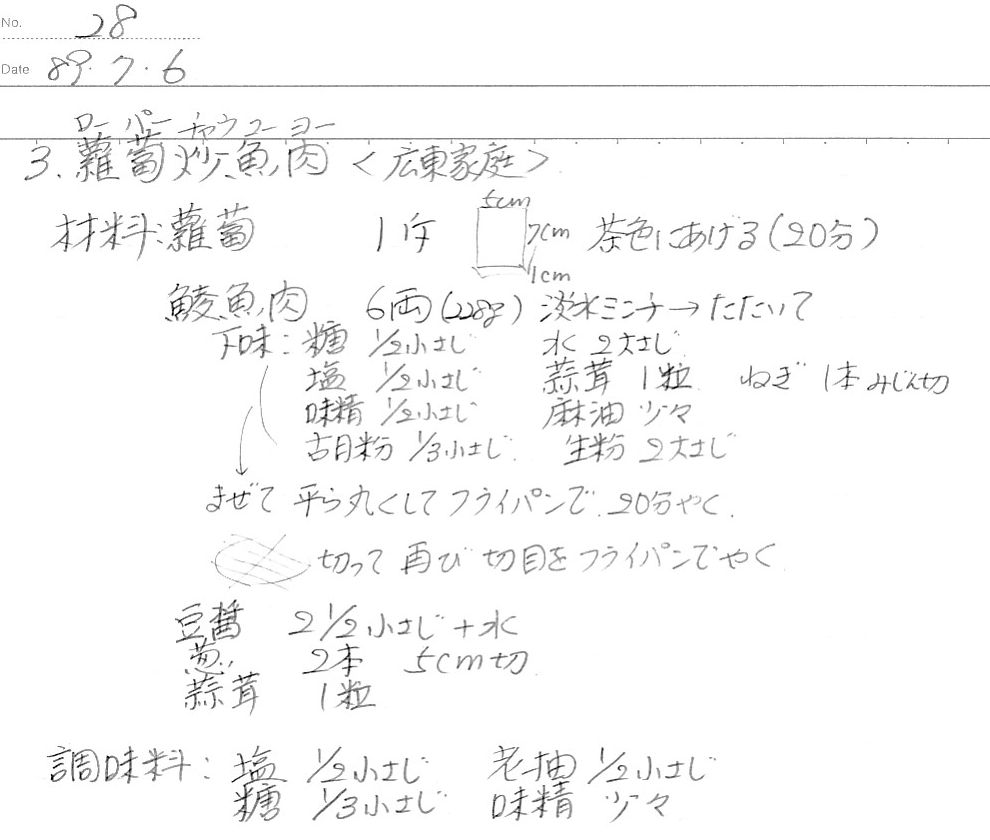 No. 28
Date 89.7.6
ローパーチャウユーヨー
3. 蘿蔔炒魚肉 <広東家庭>
5cm
材料: 蘿蔔 1斤 7cm 茶色にあげる(20分)
1cm
鯪魚肉 6両(228g) 淡水ミンチ→たたいて
下味: 糖 1/2小さじ 水 2大さじ
塩 1/2小さじ 蒜茸 1粒 ねぎ 1本 みじん切
味精 1/2小さじ 麻油 少々
古月粉 1/3小さじ 生粉 2大さじ
まぜて 平ら丸くしてフライパンで 20分やく.
切って 再び 切目をフライパンでやく
豆醤 2 1/2小さじ+水
葱 2本 5cm切
蒜茸 1粒
調味料: 塩 1/2小さじ 老抽 1/2小さじ
糖 1/3小さじ 味精 少々